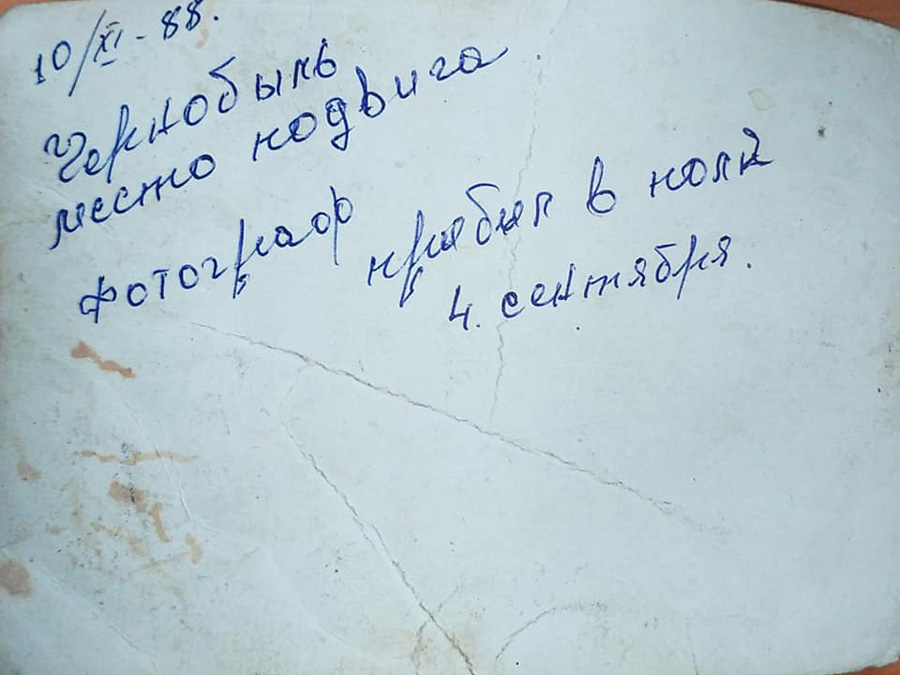 10/XI-88.
Чернобыль
место подвига.
фотограф прибыл в полк
4. сентября.